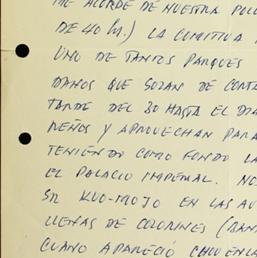 ME ACORDÉ DE NUESTRA POLC
DE 40 hs.) LA COMITIVA
UNO DE TANTOS PARQUES
DANOS QUE GOZAN DE CONTA
TARDE DEL 30 HASTA EL DIA
REÑOS Y APROVECHAN PARA
TENIENDO COMO FONDO LA
EL PALACIO IMPERIAL. NO
SR KUO-MOJO EN LAS AU
LLENAS DE COLORINES (BAN
CUANDO APARECIÓ CHOU EN LA